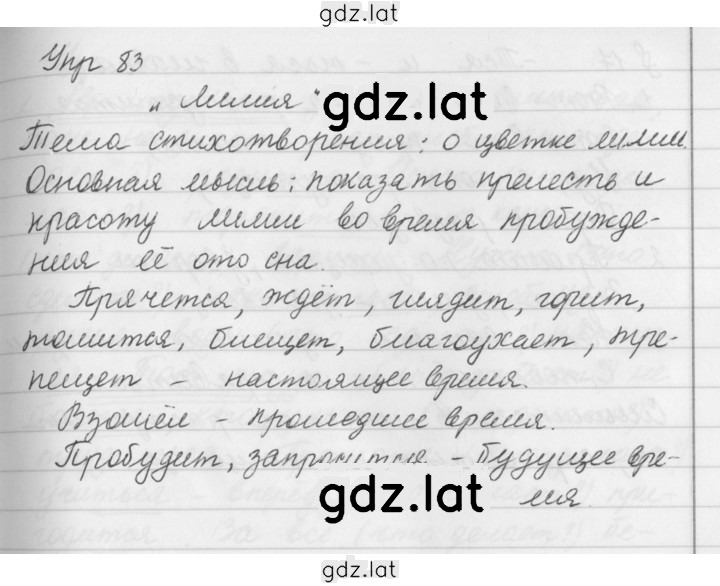 gdz.lat
Упр 83
„Лилия"
gdz.lat
Тема стихотворения: о цветке лилии.
Основная мысль: показать прелесть и
красоту лилии во время пробужде-
ния её ото сна.
Прячется, ждёт, глядит, горит,
томится, блещет, благоухает, тре-
пещет - настоящее время.
Взошёл - прошедшее время.
Пробудит, - будущее вре-
мя.
gdz.lat
gdz.lat